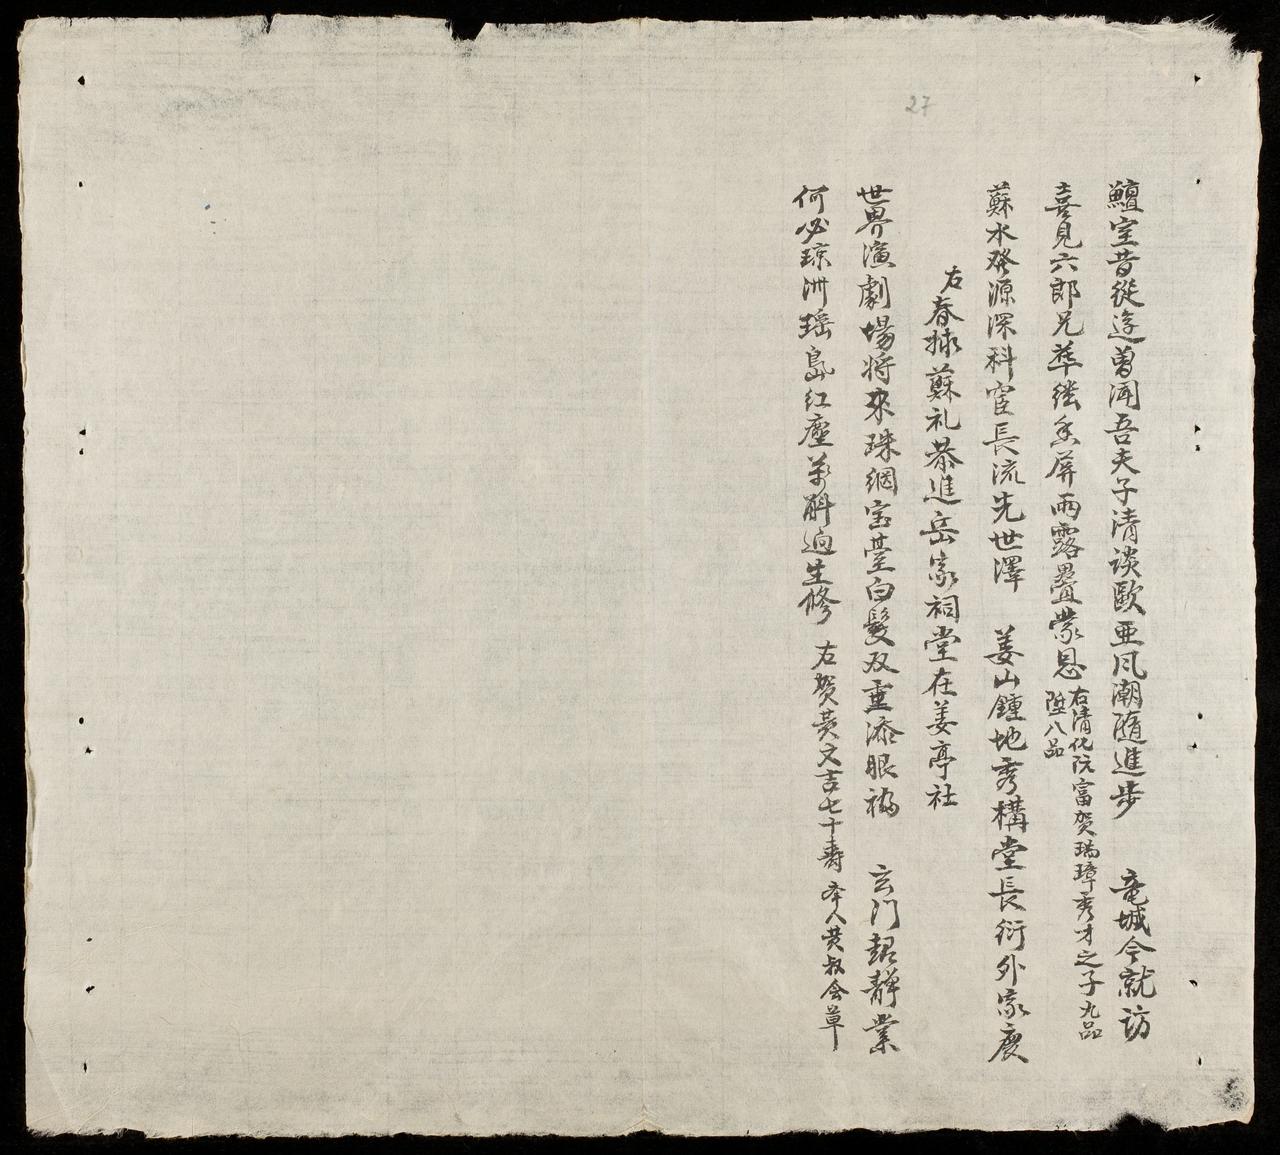 27
鱣室昔從遊曽闻吾夫子清談歐亜凨潮隨進步 竜城今就访
喜見六郎兄華继 屏雨露疊蒙恩
右清化阮富贺瑞璋秀才之子九品
陞八品
蘇水發源深科宦長流先世澤 姜山鍾地秀構堂長衍外家慶
右春掾蘇礼恭進岳家祠堂在姜亭社
世界演劇場将來珠網宝臺白髮双垂添眼福 玄门超静業
何必琼洲瑶島红塵萬斛逈生修
右贺黄文吉七十壽 本人黄叔会草